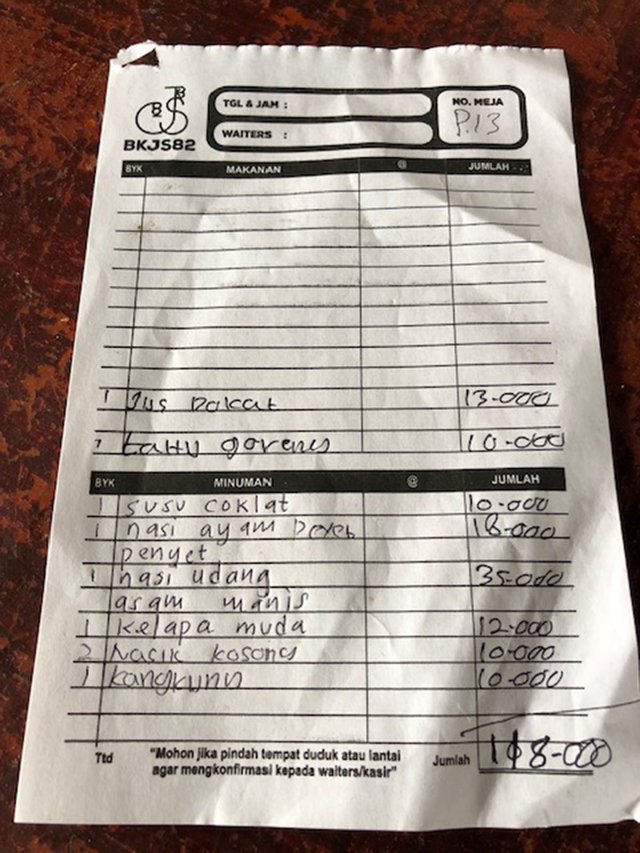 BKJS82
TGL & JAM :
WAITERS :
NO. MEJA
P.13
BYK MAKANAN @ JUMLAH
1 Jus Pokat 13.000
1 tahu goreng 10.000
BYK MINUMAN @ JUMLAH
1 susu coklat 10.000
1 nasi ayam 18.000
penyet
1 nasi udang 35.000
asam manis
1 Kelapa muda 12.000
2 Nasik kosong 10.000
1 kangkung 10.000
Ttd "Mohon jika pindah tempat duduk atau lantai Jumlah 118.000
agar mengkonfirmasi kepada waiters/kasir"